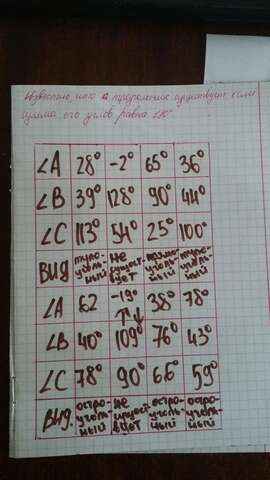 Известно, что треугольник существует, если
сумма его углов равна 180°
∠A 28° -2° 65° 36°
∠B 39° 128° 90° 44°
∠C 113° 54° 25° 100°
ВИД тупоугольный не существует прямоугольный тупоугольный
∠A 62 -19° 38° 78°
∠B 40° 109° 76° 43°
∠C 78° 90° 66° 59°
ВИД. остроугольный не существует остроугольный остроугольный